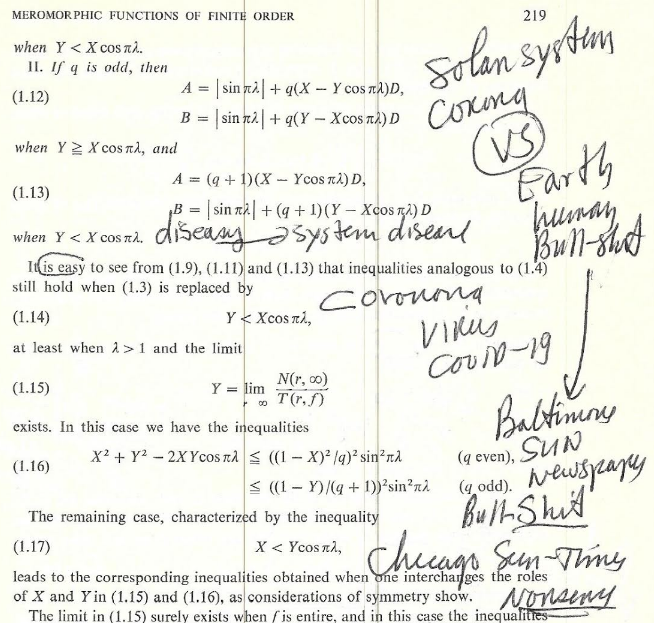 MEROMORPHIC FUNCTIONS OF FINITE ORDER 219
when Y < X cos πλ.
II. If q is odd, then
(1.12) A = |sin πλ| + q(X − Y cos πλ)D,
B = |sin πλ| + q(Y − X cos πλ)D
when Y ≧ X cos πλ, and
(1.13) A = (q + 1)(X − Y cos πλ)D,
B = |sin πλ| + (q + 1)(Y − X cos πλ)D
when Y < X cos πλ.
It is easy to see from (1.9), (1.11) and (1.13) that inequalities analogous to (1.4)
still hold when (1.3) is replaced by
(1.14) Y < X cos πλ,
at least when λ > 1 and the limit
(1.15) Y = lim r ∞ N(r, ∞) / T(r, f)
exists. In this case we have the inequalities
(1.16) X² + Y² − 2XY cos πλ ≦ ((1 − X)²/q)² sin² πλ (q even),
≦ ((1 − Y)/(q + 1))² sin² πλ (q odd).
The remaining case, characterized by the inequality
(1.17) X < Y cos πλ,
leads to the corresponding inequalities obtained when one interchanges the roles
of X and Y in (1.15) and (1.16), as considerations of symmetry show.
The limit in (1.15) surely exists when f is entire, and in this case the inequalities
system
VS
Earth
human
Bull-shit
system
Virus
COVID-19
Baltimore
SUN
Newspaper
Bull-Shit
Chicago Sun-Times